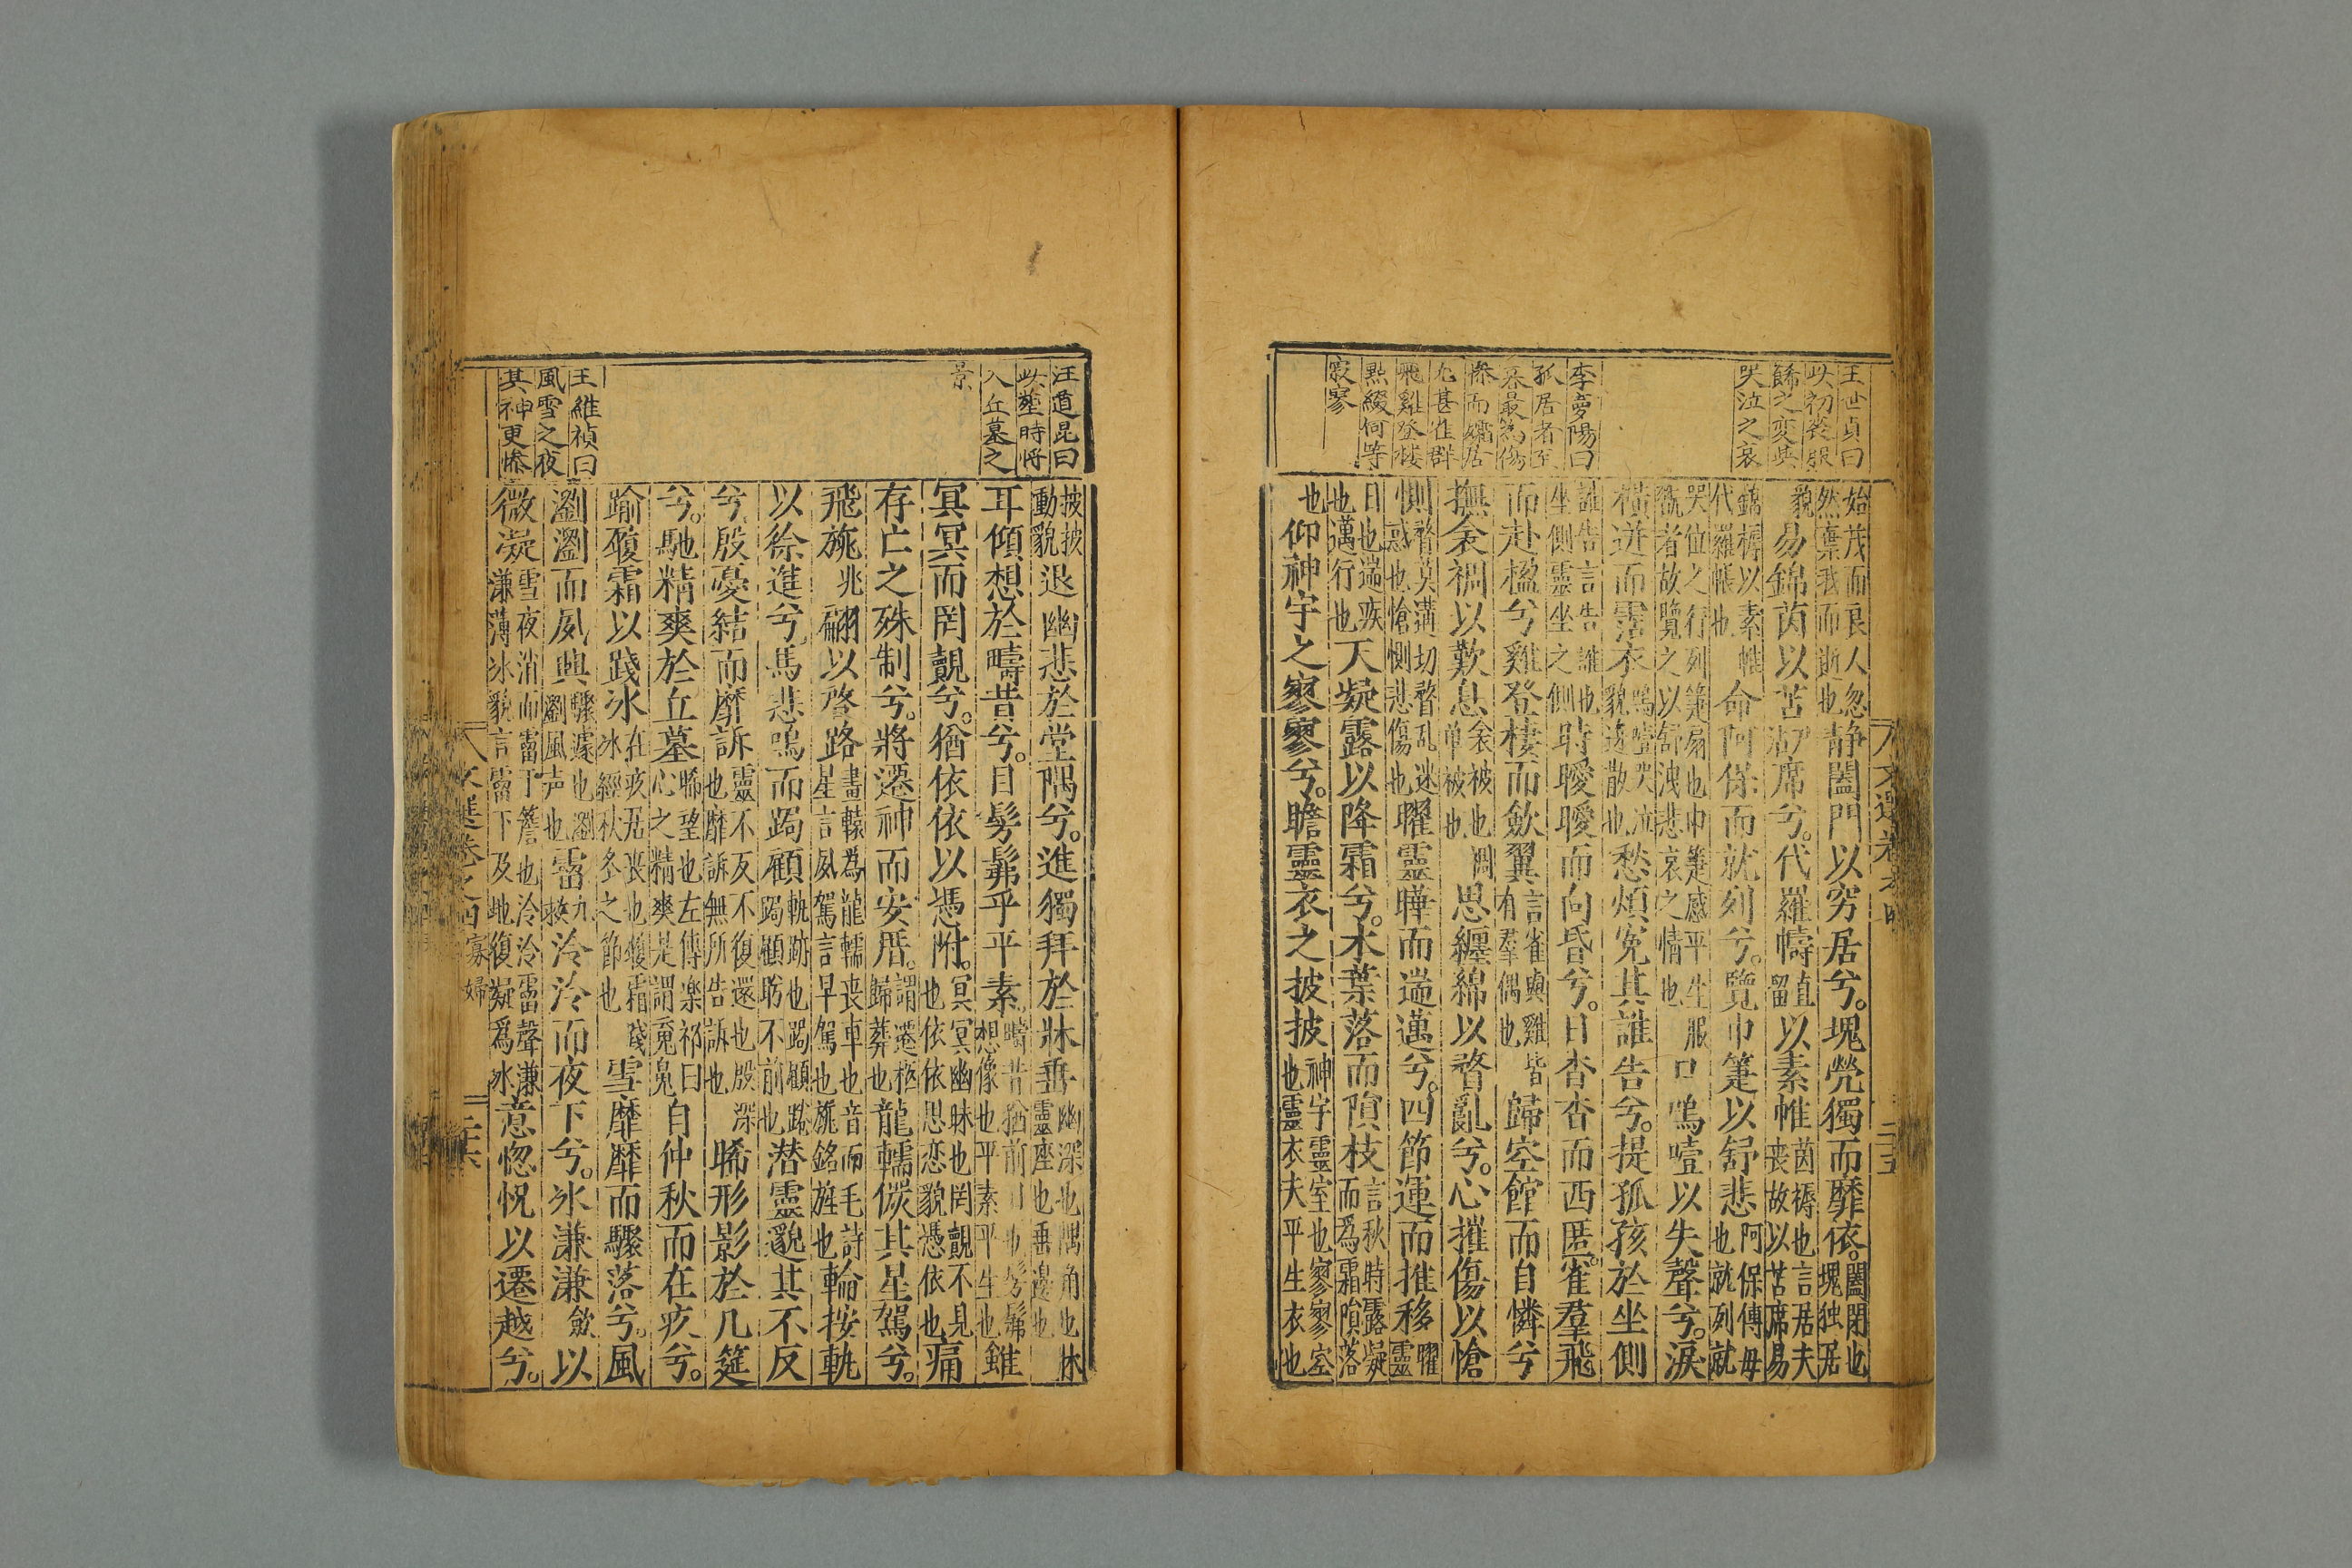 王世貞曰
以初喪服
飾之変共
哭泣之哀
李夢陽曰
孤居者至
暮最為傷
惨而孀居
尤甚雀群
飛雞登棲
點綴何等
寂寥
始茂而良人忽
然棄我而逝也
靜闔門以窮居兮。塊煢獨而靡依。
闔閉也
塊独居
貌
易錦茵以苫席兮。代羅幬
直
留
以素帷
茵褥也言居夫
喪故以苫席易
錦褥以素帷
代羅帳也
命阿保而就列兮。覽巾箑以舒悲
阿保傅母
也就列就
哭位之行列箑扇也巾箑感平生服
翫者故覽之以舒洩悲哀之情也
口嗚噎以失聲兮。淚
橫迸而霑衣
嗚噎哭泣
貌迸散也
愁煩寃其誰告兮。提孤孩於坐側
誰告言告誰也
坐側靈坐之側
時曖曖而向昏兮。日杳杳而西匿。雀羣飛
而赴楹兮雞登棲而斂翼
言雀與雞皆
有羣偶也
歸空館而自憐兮
撫衾裯以歎息
衾被也裯
單被也
思纏綿以瞀亂兮。心摧傷以愴
惻
瞀莫遘切瞀乱迷
惑也愴惻悲傷也
曜靈曄而遄邁兮。四節運而推移
曜
靈
日也遄疾
也邁行也
天凝露以降霜兮。木葉落而隕枝
言秋時露凝
而為霜隕落
也
仰神宇之寥寥兮。瞻靈衣之披披
神宇靈室也寥寥空
也靈衣夫平生衣也
文選卷之四
二十五
汪道昆曰
此塟時将
入丘墓之
景
王維禎曰
風雪之夜
其神更惨
披披
動貌
退幽悲於堂隅兮。進獨拜於牀垂
幽深也隅角也牀
靈座也垂邊也
耳傾想於疇昔兮。目髣髴乎平素
疇昔猶前日也髣髴
想像也平素平生也
雖
冥冥而罔覿兮。猶依依以憑附。
冥冥幽昧也罔覿不見
也依依思恋貌憑依也
痛
存亡之殊制兮。將遷神而安厝。
謂遷柩
歸葬也
龍轜儼其星駕兮。
飛旐
兆
翩以啓路
畫轅為龍轜喪車也音而毛詩
星言夙駕言早駕也旐銘旌也
輪按軌
以徐進兮馬悲鳴而跼顧
軌跡也跼顧踡
跼顧盻不前也
潜靈邈其不反
兮殷憂結而靡訴
靈不反不復還也殷深
也靡訴無所告訴也
睎形影於几筵
兮。馳精爽於丘墓
睎望也左傳楽祁曰
心之精爽是謂䰟鬼
自仲秋而在疚兮。
踰履霜以踐冰
在疚居喪也履霜踐
冰經秋冬之節也
雪靡靡而驟落兮。風
瀏瀏而夙興
驟遽也瀏
瀏風声也
霤
九
救
泠泠而夜下兮。冰溓溓
斂
以
微凝
雪夜消而霤于簷也泠泠霤聲溓
溓薄冰貌言霤下及地復凝爲冰
意惚怳以遷越兮。
文選卷之四
寡婦
二十六